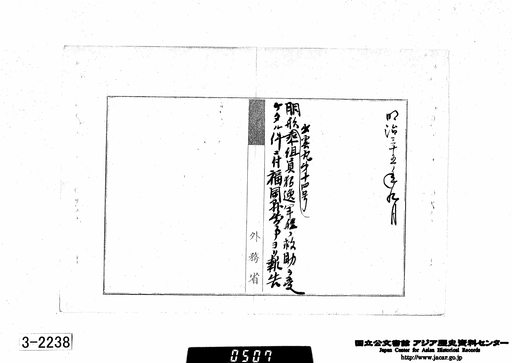 明治三十五年九月
公第九十四号
胴形乗組員佐遠ノ救助ヲ受
ケタル件ニ付福岡県知事ヨリ報告
外務省
3-2238
0507
国立公文書館 アジア歴史資料センター
Japan Center for Asian Historical Records
http://www.jacar.go.jp